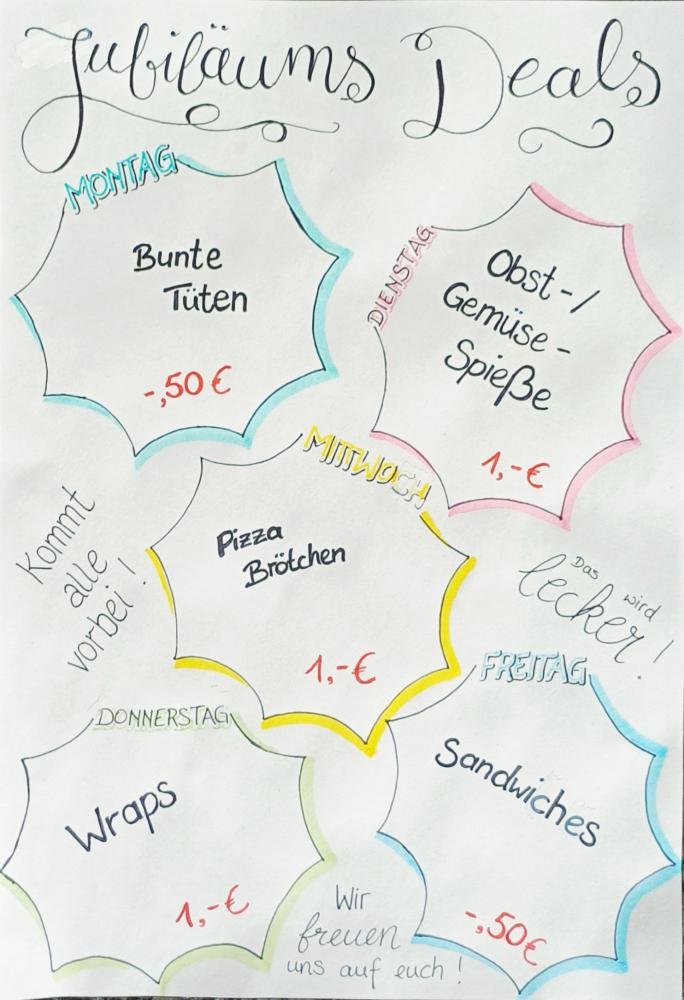 Jubiläums Deals
MONTAG
Bunte
Tüten
-,50 €
DIENSTAG
Obst-/
Gemüse-
Spieße
1,-€
MITTWOCH
Pizza
Brötchen
1,-€
Kommt
alle
vorbei!
Das wird
lecker!
DONNERSTAG
Wraps
1,-€
FREITAG
Sandwiches
-,50€
Wir
freuen
uns auf euch!